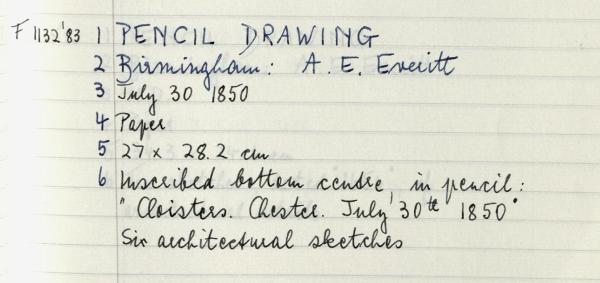 F 1132'83 1 PENCIL DRAWING
2 Birmingham: A. E. Everitt
3 July 30 1850
4 Paper
5 27 x 28.2 cm
6 Inscribed bottom centre, in pencil:
" Cloisters. Chester. July 30th 1850"
Six architectural sketches